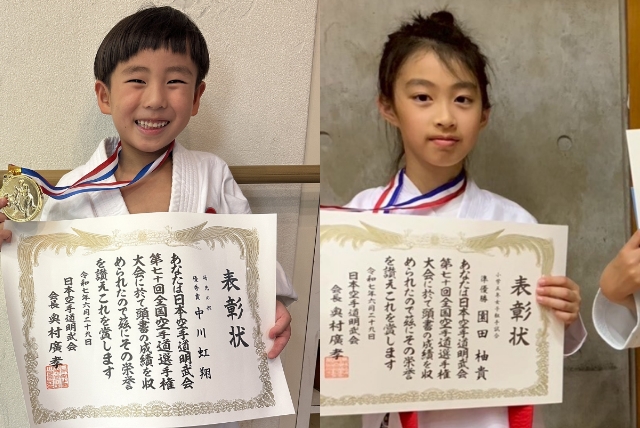 表彰状
優秀賞
中川虹翔
あなたは日本空手道明武会
第七十回全国空手道選手権
大会に於て頭書の成績を収
められたので茲にその栄誉
を讃えこれを賞します
令和七年六月二十九日
日本空手道明武会
会長 奥村廣孝
表彰状
準優勝 園田柚貴
あなたは日本空手道明武会
第七十回全国空手道選手権
大会に於て頭書の成績を収
められたので茲にその栄誉
を讃えこれを賞します
令和七年六月二十九日
日本空手道明武会
会長 奥村廣孝